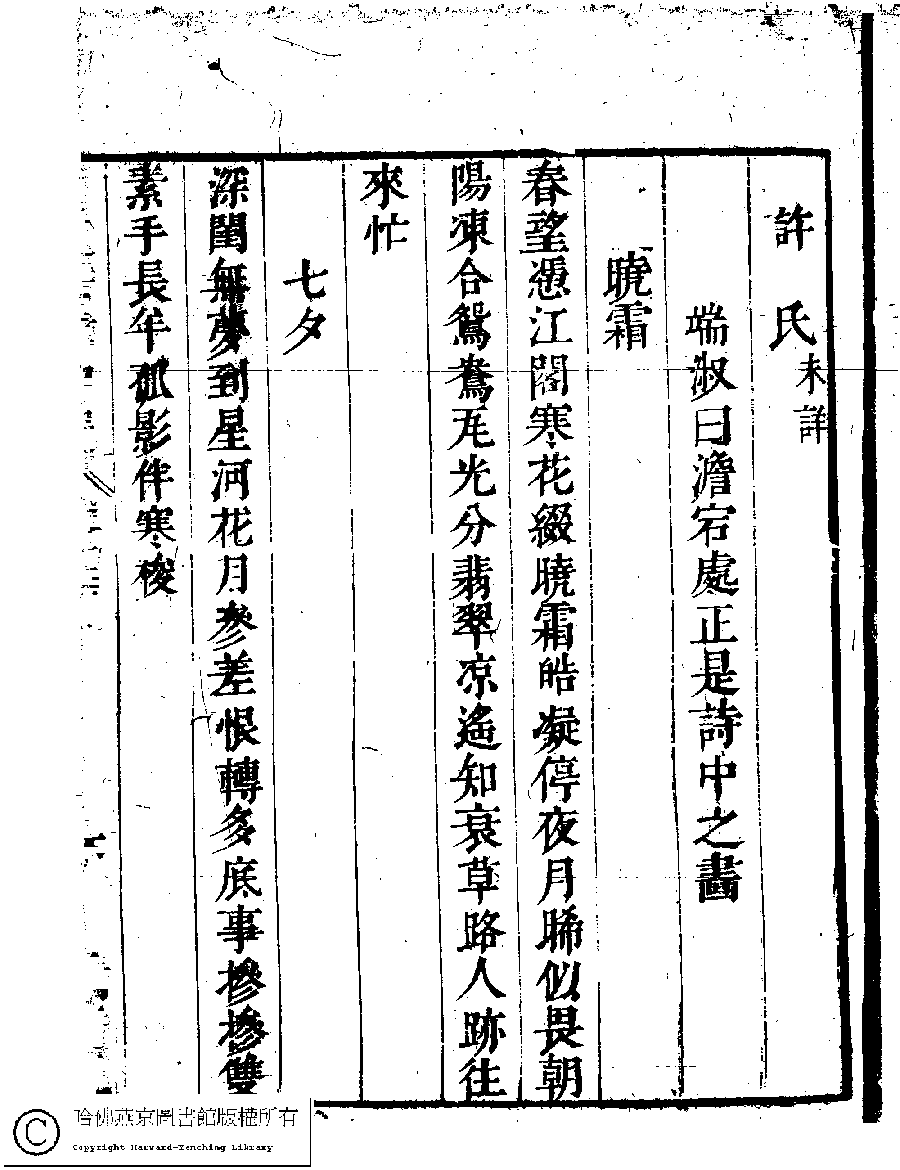 許氏未詳
端淑曰澹宕處正是詩中之畵
曉霜
春望憑江閣寒花綴曉霜皓凝停夜月晞似畏朝
陽凍合鴛鴦瓦光分翡翠凉遙知衰草路人跡往
來忙
七夕
深閨無夢到星河花月參差恨轉多底事摻摻雙
素手長年孤影伴寒梭
哈佛燕京圖書館版權所有
Copyright Harvard-Yenching Library